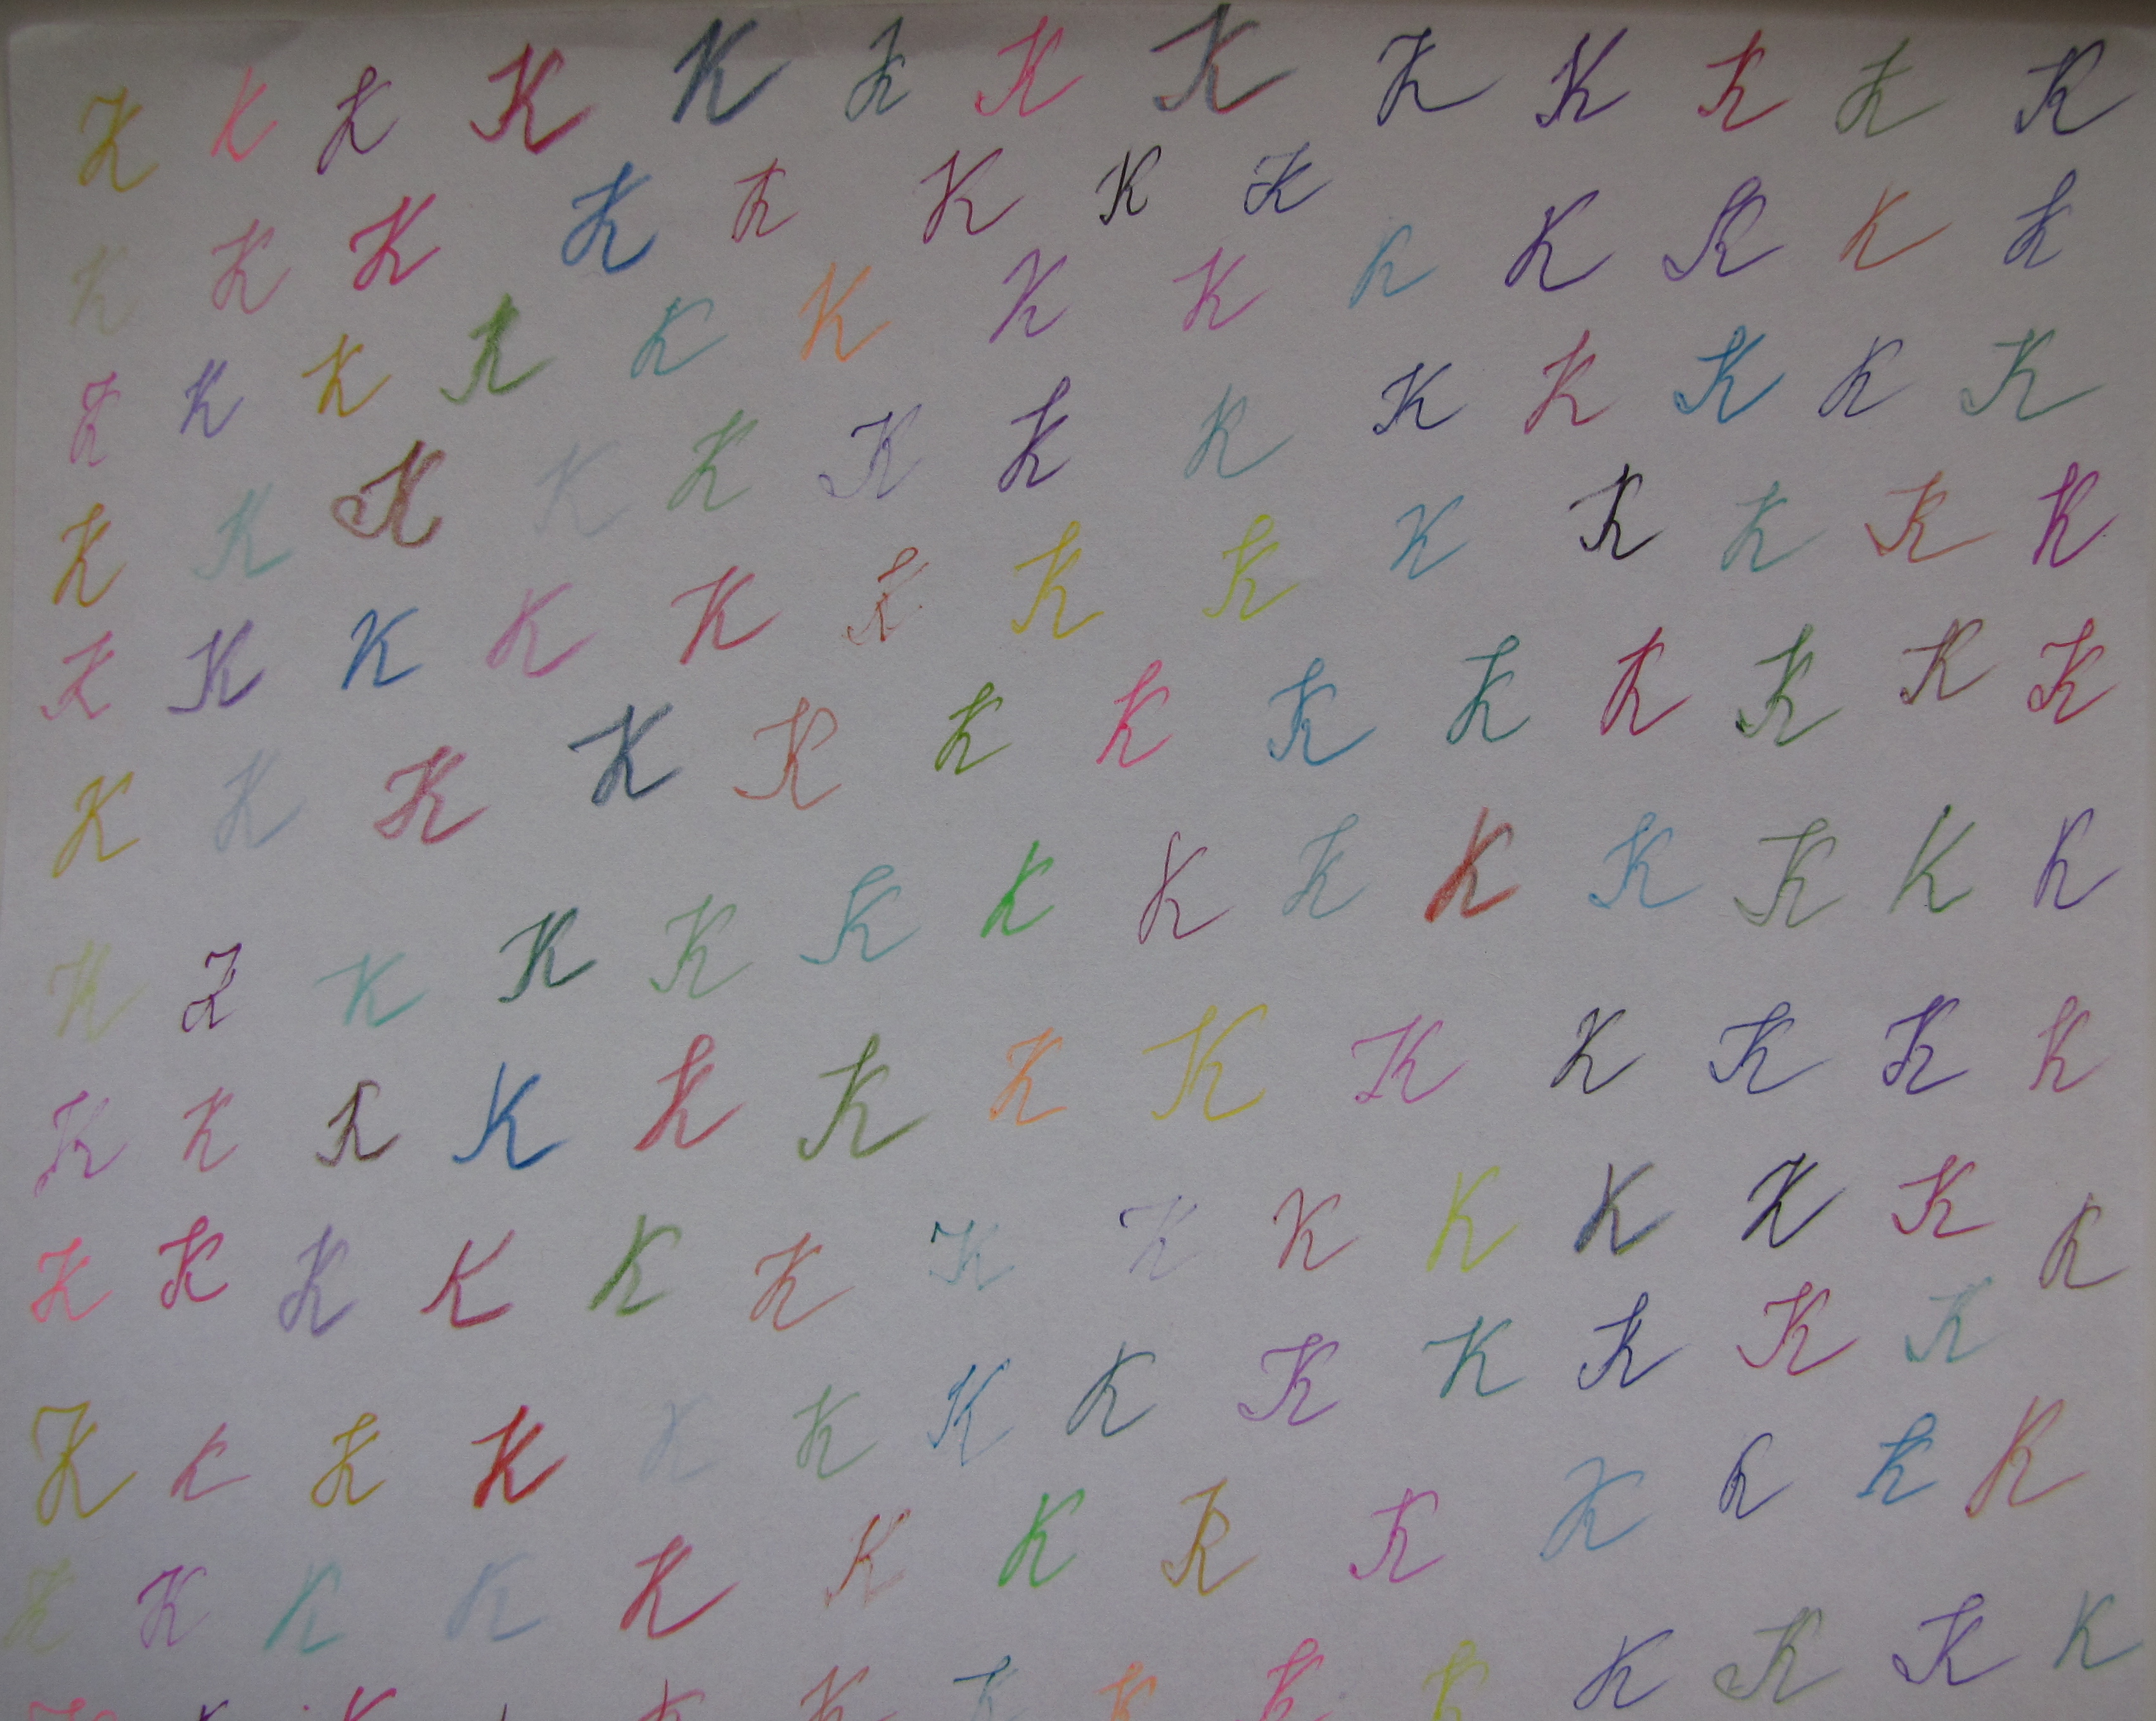 K K K K K K K K
K K K K K K K K K K K K K
K K K K K K K K K K K K K
K K K K K K K K K K K K K
K K K K K K K K K K K K K
K K K K K K K K K K K K K
K K K K K K K K K K K K K K
K K K K K K K K K K K K K
K K K K K K K K K K K K K K
K K K K K K K K K K K K K
K K K K K K K K K K K K K
K K K K K K K K K K K